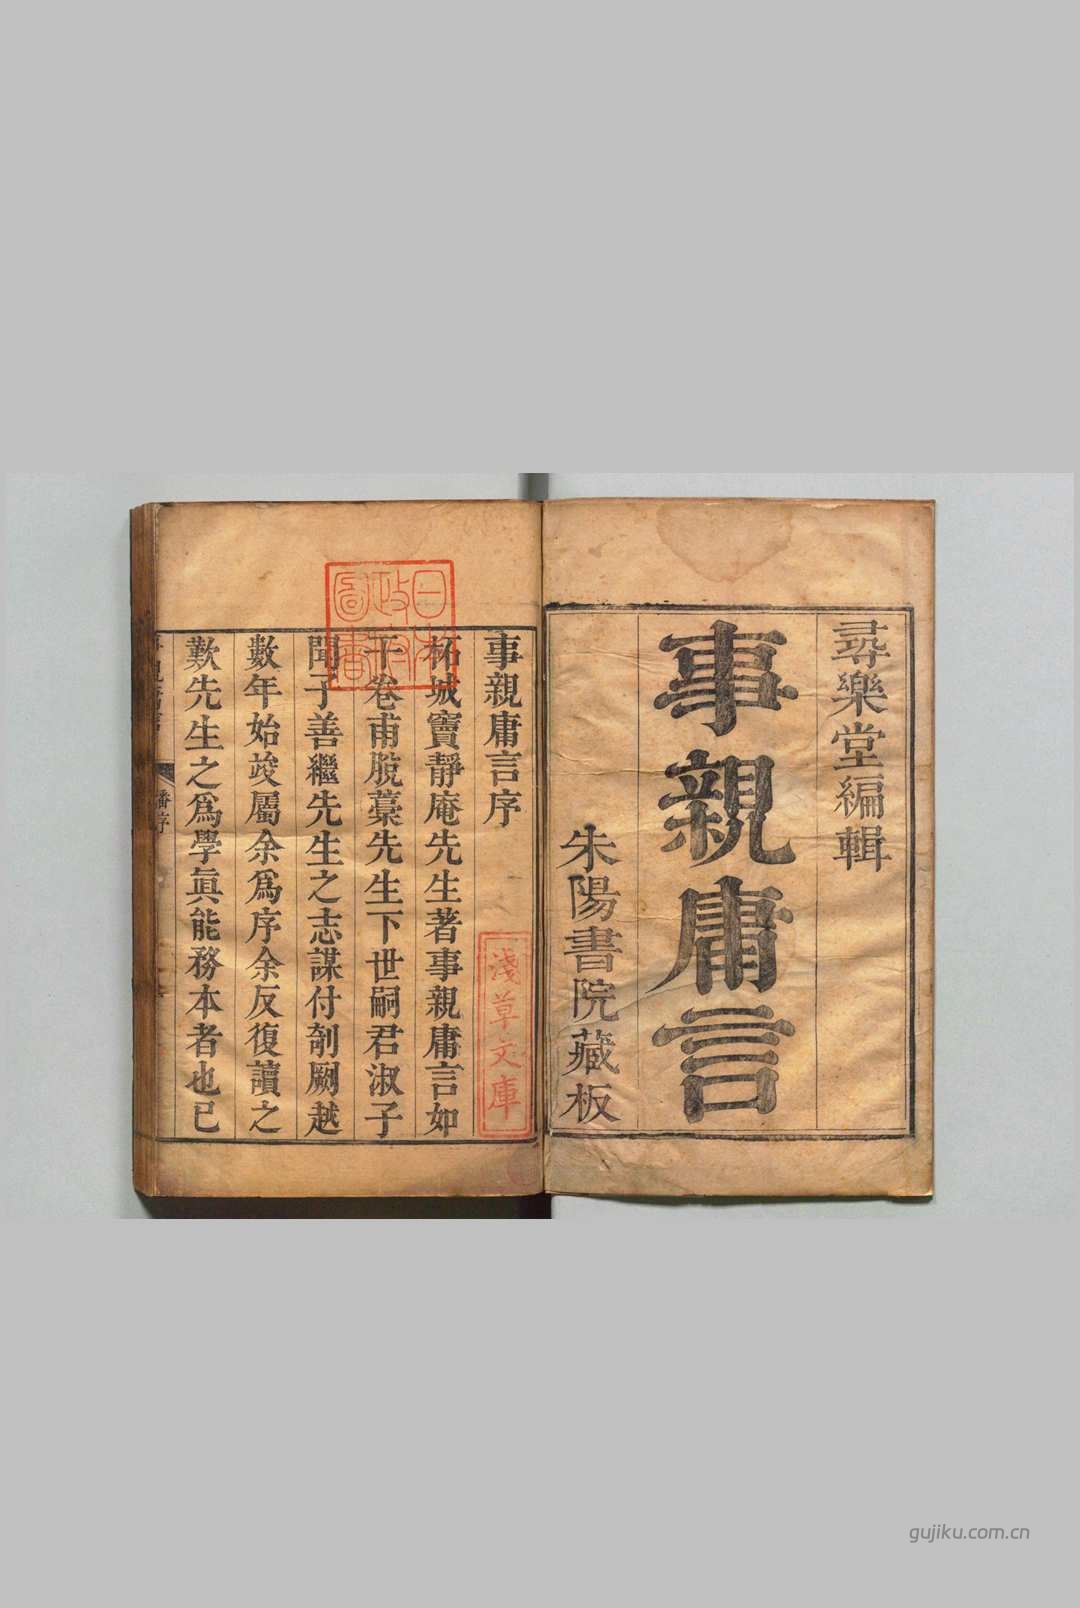 尋樂堂編輯
事親庸言
朱陽書院藏板
事親庸言序
柘城竇靜庵先生著事親庸言如
干卷甫脫藁先生下世嗣君淑子
聞子善繼先生之志謀付剞劂越
數年始竣屬余爲序余反復讀之
歎先生之爲學眞能務本者也已
日本
政府
圖書
淺草文庫
序
gujiku.com.cn